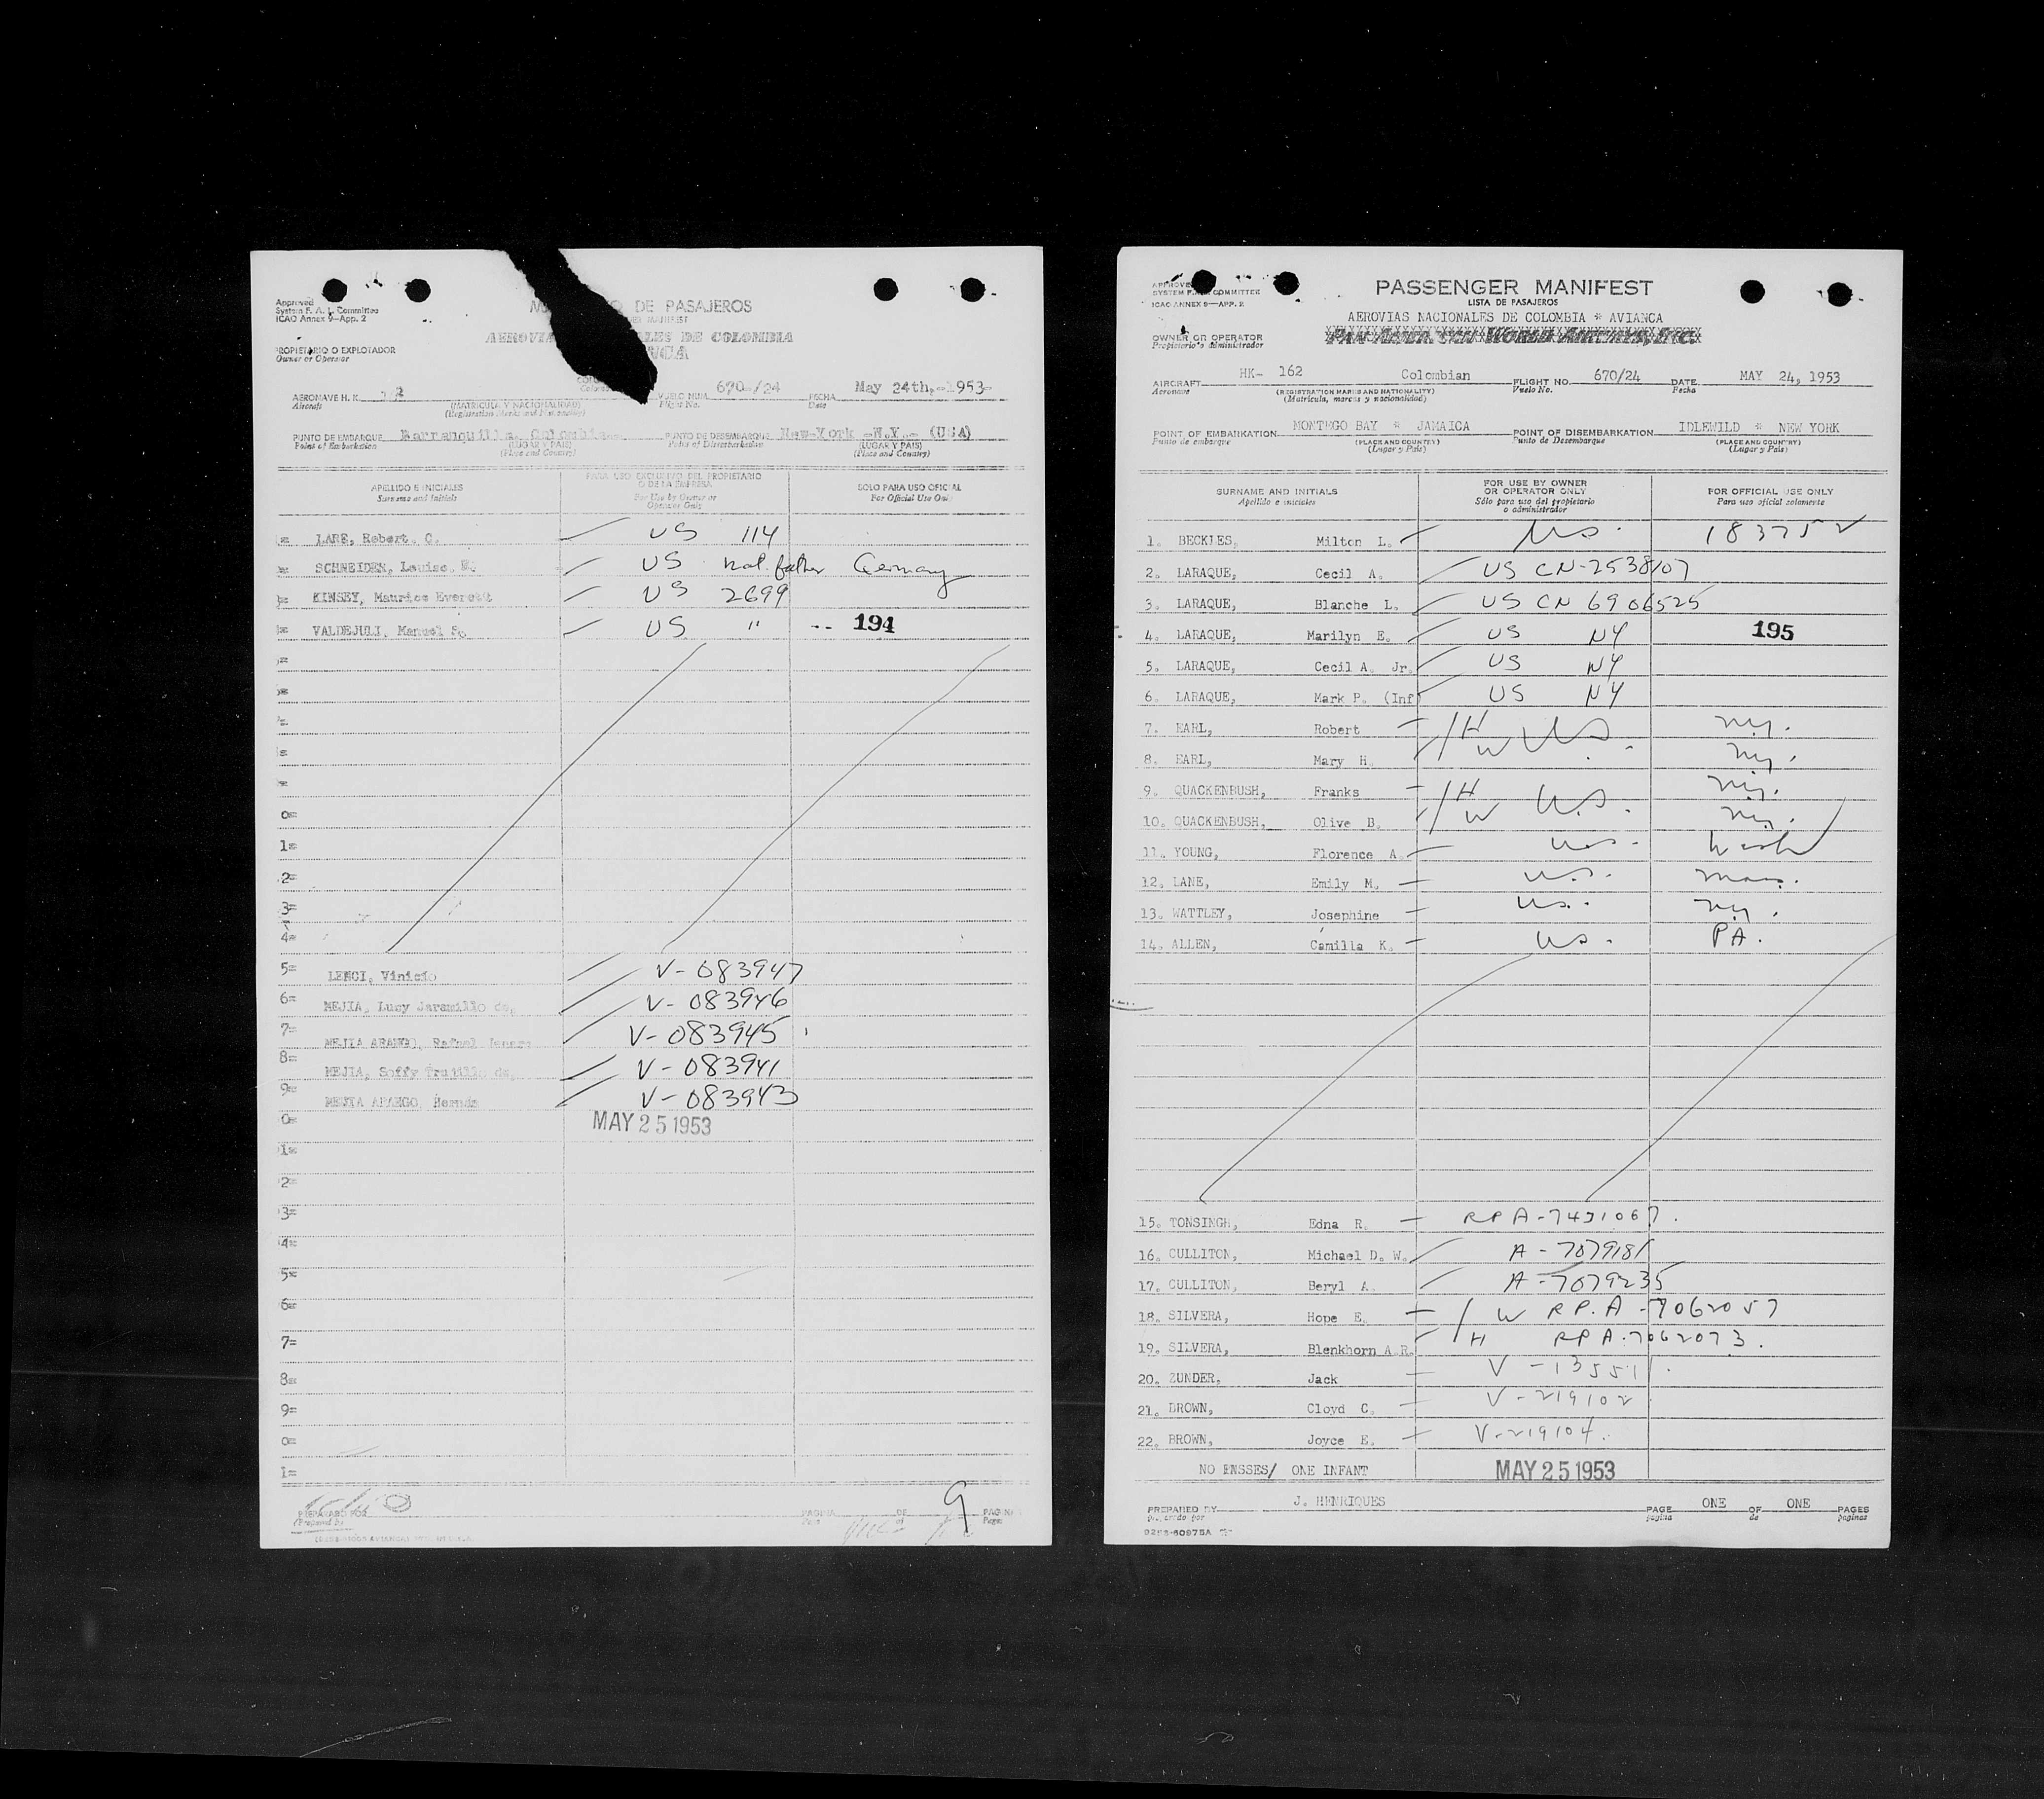 Approved
System F. A. L. Committee
ICAO Annex 9—App. 2
DE PASAJEROS
AEROVIAS NACIONALES DE COLOMBIA
PROPIETARIO O EXPLOTADOR
Owner or Operator
670-/24 May 24th,-1953-
AERONAVE H. K. VUELO NUM. FECHA
Aircraft (MATRICULA Y NACIONALIDAD) Flight No. Date
PUNTO DE EMBARQUE Barranquilla, Colombia PUNTO DE DESEMBARQUE New-York -N.Y.- (USA)
Points of Embarkation (LUGAR Y PAIS) Points of Disembarkation (LUGAR Y PAIS)
(Place and Country) (Place and Country)
APELLIDO E INICIALES PARA USO EXCLUSIVO DEL PROPIETARIO O DE LA EMPRESA SOLO PARA USO OFICIAL
Surname and Initials For Use by Owner or Operator Only For Official Use Only
LARE, Robert. C. US 114
SCHNEIDER, Louise. US nat. father Germany
KINSEY, Maurice Everett US 2699
VALDEJULI, Manuel US " -- 194
0=
1=
2=
3=
4=
5= LENCI, Vinicio V-083947
6= MEJIA, Lucy Jaramillo de, V-083946
7= MEJIA ARANGO, Rafael V-083945
8= MEJIA, Soffy Trujillo de, V-083941
9= MEJIA ARANGO, Hernán V-083943
0= MAY 25 1953
1=
2=
3=
4=
5=
6=
7=
8=
9=
0=
1=
PREPARADO POR PAGINA DE 9 PAGINAS
Prepared by
APPROVED
SYSTEM F.A.L. COMMITTEE
ICAO ANNEX 9—APP. 2
PASSENGER MANIFEST
LISTA DE PASAJEROS
AEROVIAS NACIONALES DE COLOMBIA * AVIANCA
OWNER OR OPERATOR PAN AMERICAN WORLD AIRWAYS, INC.
Propietario o administrador
AIRCRAFT HK- 162 Colombian FLIGHT NO. 670/24 DATE MAY 24, 1953
Aeronave (REGISTRATION MARKS AND NATIONALITY) Vuelo No. Fecha
(Matrícula, marcas y nacionalidad)
POINT OF EMBARKATION MONTEGO BAY * JAMAICA POINT OF DISEMBARKATION IDLEWILD * NEW YORK
Punto de embarque (PLACE AND COUNTRY) Punto de Desembarque (PLACE AND COUNTRY)
(Lugar y País) (Lugar y País)
SURNAME AND INITIALS FOR USE BY OWNER OR OPERATOR ONLY FOR OFFICIAL USE ONLY
Apellido e iniciales Sólo para uso del propietario o administrador Para uso oficial solamente
1. BECKLES, Milton L. US. 183752
2. LARAQUE, Cecil A. US CN-2538107
3. LARAQUE, Blanche L. US CN 6906525
4. LARAQUE, Marilyn E. US NY 195
5. LARAQUE, Cecil A. Jr. US NY
6. LARAQUE, Mark P. (Inf) US NY
7. EARL, Robert H US ny.
8. EARL, Mary H. W ny.
9. QUACKENBUSH, Franks H U.S. ny.
10. QUACKENBUSH, Olive B. W ny.
11. YOUNG, Florence A. U.S. Wash
12. LANE, Emily M. U.S. mass.
13. WATTLEY, Josephine US. ny.
14. ALLEN, Camilla K. US. PA.
15. TONSINGH, Edna R. RP A-7431067.
16. CULLITON, Michael D. W. A-7079181
17. CULLITON, Beryl A. A-7079235
18. SILVERA, Hope E. W RP. A-7062057
19. SILVERA, Blenkhorn A.R. H RP A-7062073.
20. ZUNDER, Jack V-135511.
21. BROWN, Cloyd C. V-219102
22. BROWN, Joyce E. V-219104.
NO PASSES/ ONE INFANT MAY 25 1953
PREPARED BY J. HENRIQUES PAGE ONE OF ONE PAGES
Preparado por página de páginas